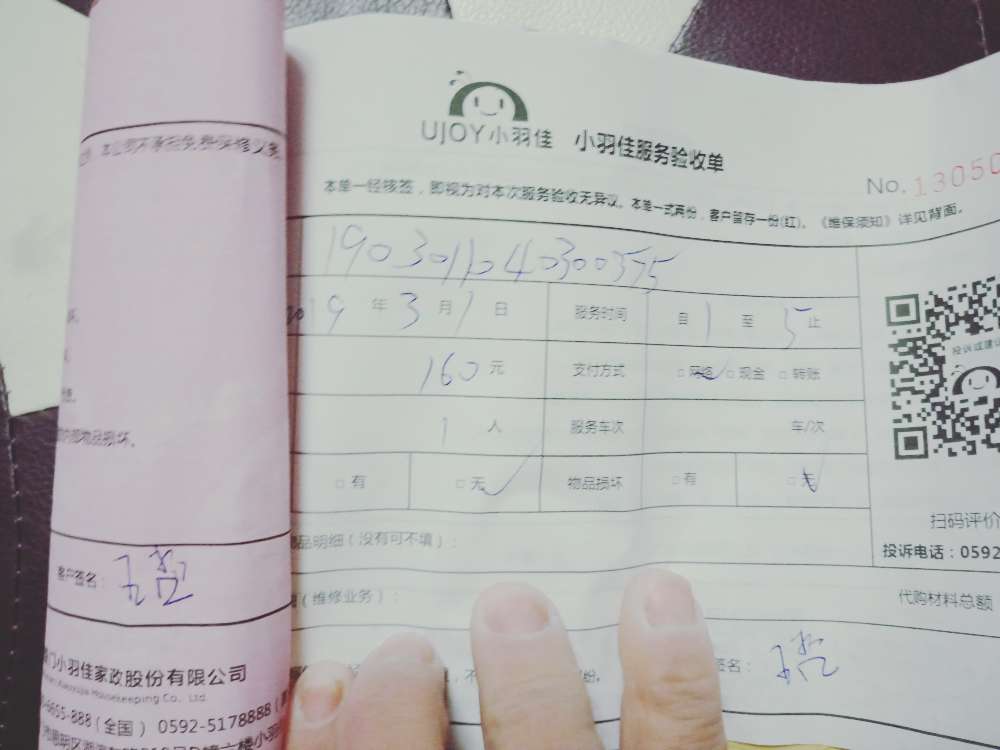 本公司不承担免费保修义务
内部物品损坏。
客户签名：
门小羽佳家政股份有限公司
Xiaoyujia Housekeeping Co., Ltd.
-6655-888(全国) 0592-5178888
UJOY小羽佳 小羽佳服务验收单
No. 13050
本单一经核签，即视为对本次服务验收无异议。本单一式两份，客户留存一份(红)。《维保须知》详见背面。
2019年3月1日 服务时间 自1至5止
160元 支付方式 □网络 □现金 □转账
1人 服务车次 车/次
□有 □无 物品损坏 □有 □无
品明细(没有可不填)：
(维修业务)： 代购材料总额
签名：
投诉或建议
扫码评价
投诉电话：0592